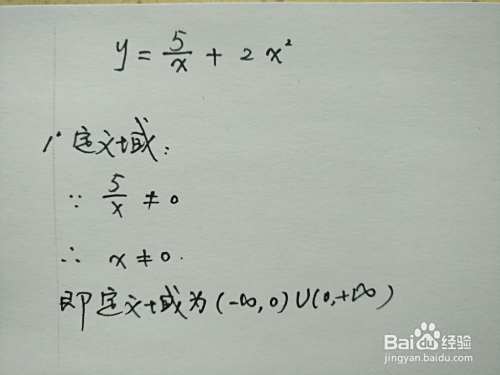 y = 5/x + 2x²
1. 定义域:
∵ 5/x ≠ 0
∴ x ≠ 0.
即定义域为(-∞,0)∪(0,+∞)
Bai du 经验
jingyan.baidu.com